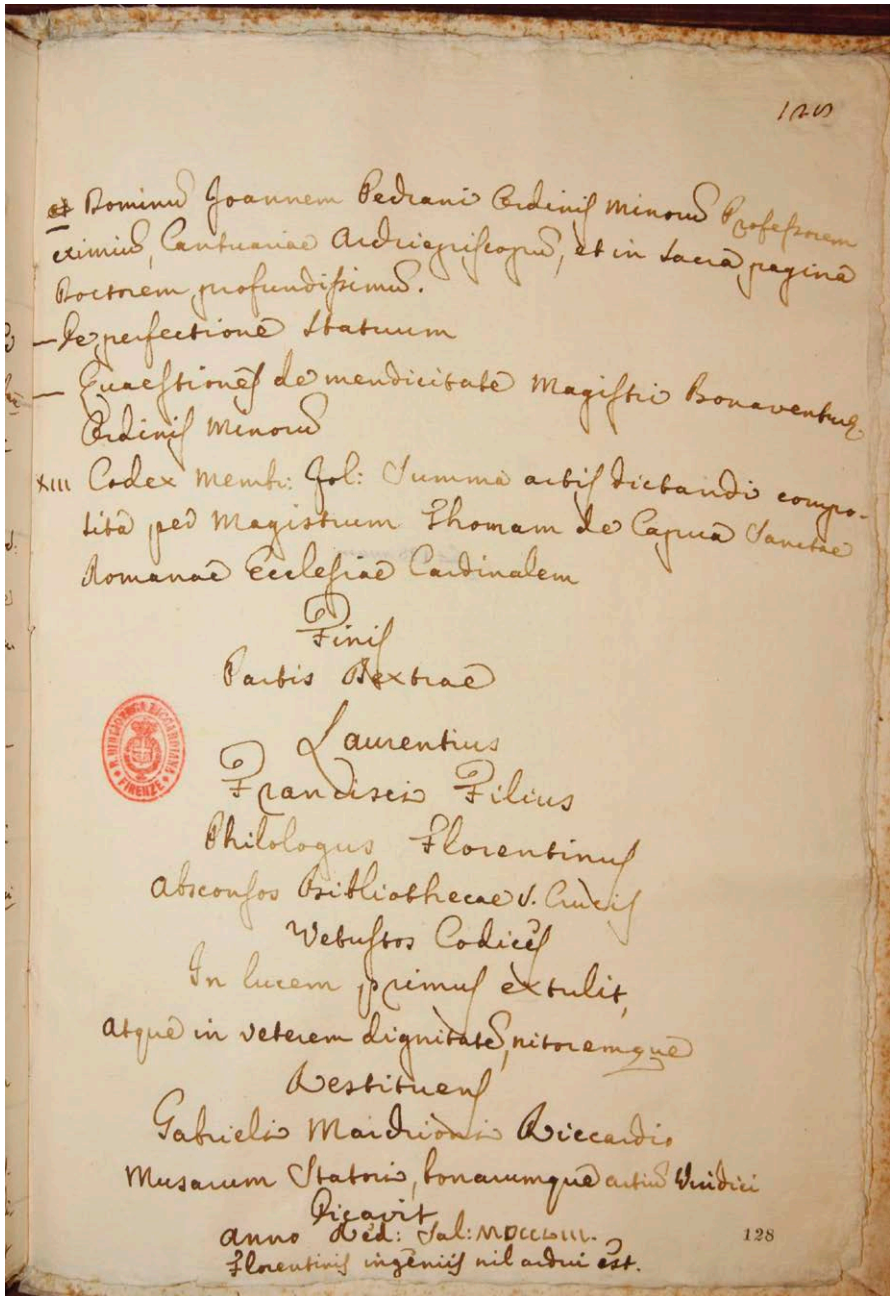 125
et Dominū Joannem Pechani Ordinis Minorū Professorem
eximiū, Cantuariae Archiepiscopū, et in sacrā paginā
Doctorem profundissimū.
— De perfectione Statuum
— Quaestiones de mendicitate Magistri Bonaventurę
Ordinis Minorū
XIII Codex Membr: Fol: Summa artis dictandi compo-
sita per Magistrum Thomam de Capua Sanctae
Romanae Ecclesiae Cardinalem
Finis
Partis Dextrae
Laurentius
Francisci Filius
Philologus Florentinus
Absconsos Bibliothecae S. Crucis
Vetustos Codices
In lucem primus extulit,
Atque in veterem dignitatē, nitoremque
Restituens
Gabrieli Marchioni Riccardio
Musarum Statori, bonarumque artiū Vindici
Dicavit
Anno Red: Sal: MDCCLIII.
Florentinis ingeniis nil ardui est.
R. BIBLIOTECA RICCARDIANA
FIRENZE
128